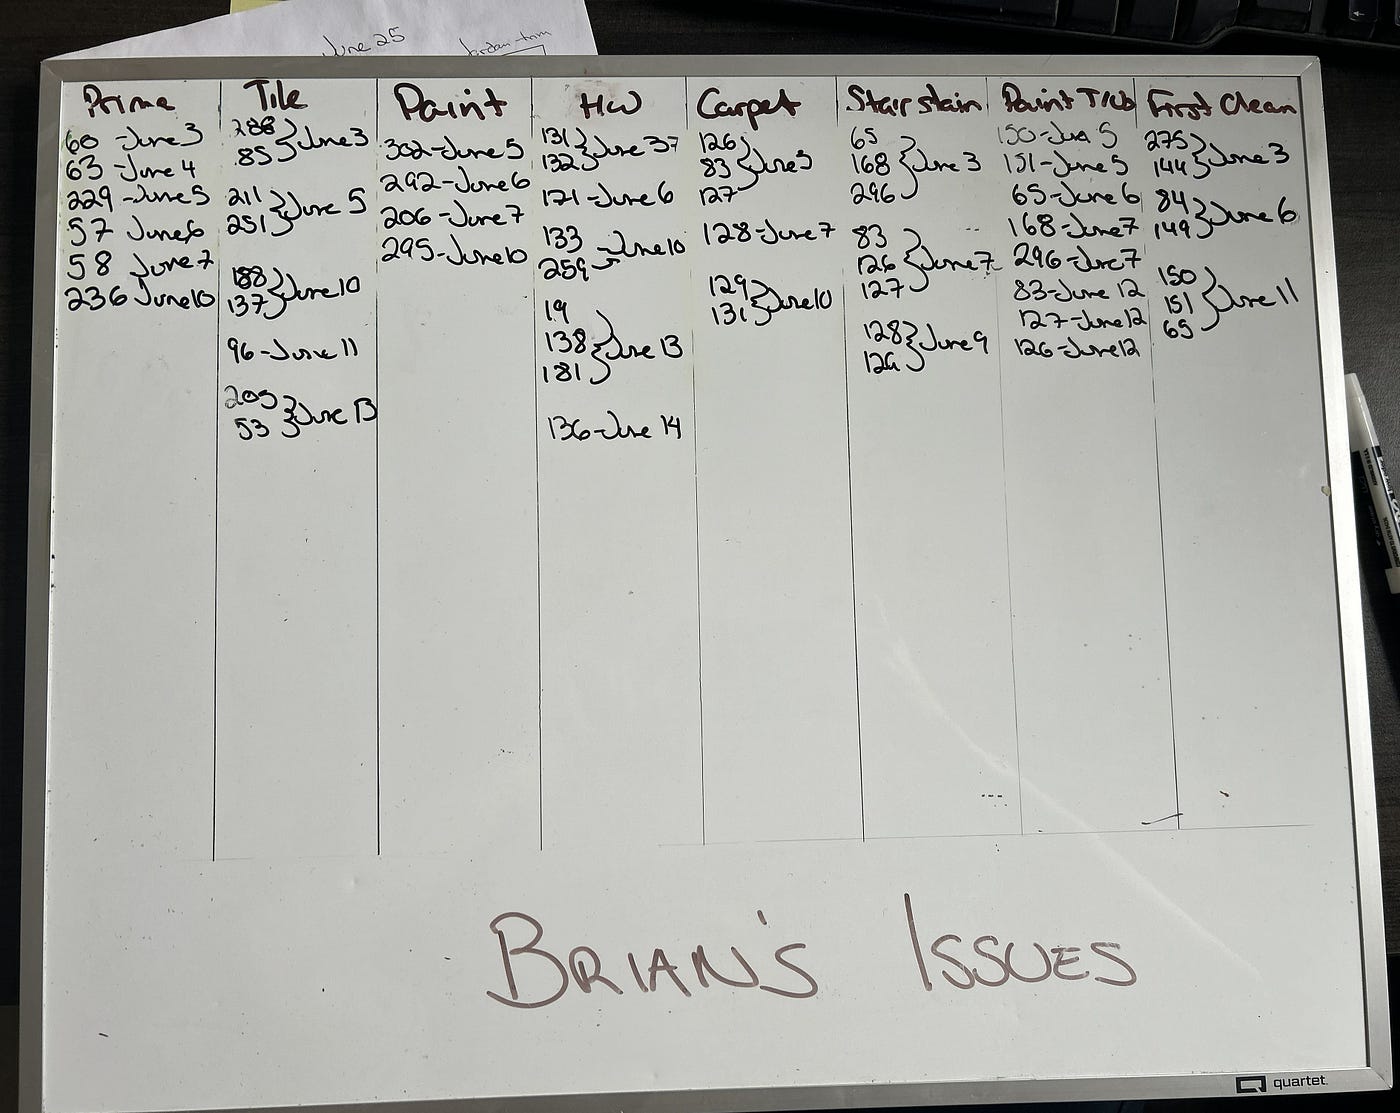 June 25
Jordan-trim
Prime
60 -June 3
63 -June 4
229 -June 5
57 June 6
58 June 7
236 June 10
Tile
288
85 } June 3
211
251 } June 5
188
137 } June 10
96-June 11
205
53 } June 13
Paint
302-June 5
292-June 6
206-June 7
295-June 10
HW
131
132 } June 37
121-June 6
133
259 June 10
19
138
181 } June 13
136-June 14
Carpet
126
83
127 } June 5
128-June 7
129
131 } June 10
Stair stain
65
168
296 } June 3
83
126
127 } June 7
128
129 } June 9
Paint T/Up
150-June 5
151-June 5
65-June 6
168-June 7
296-June 7
83-June 12
127-June 12
126-June 12
First Clean
275
144 } June 3
84
149 } June 6
150
151
65 } June 11
BRIAN'S ISSUES
quartet